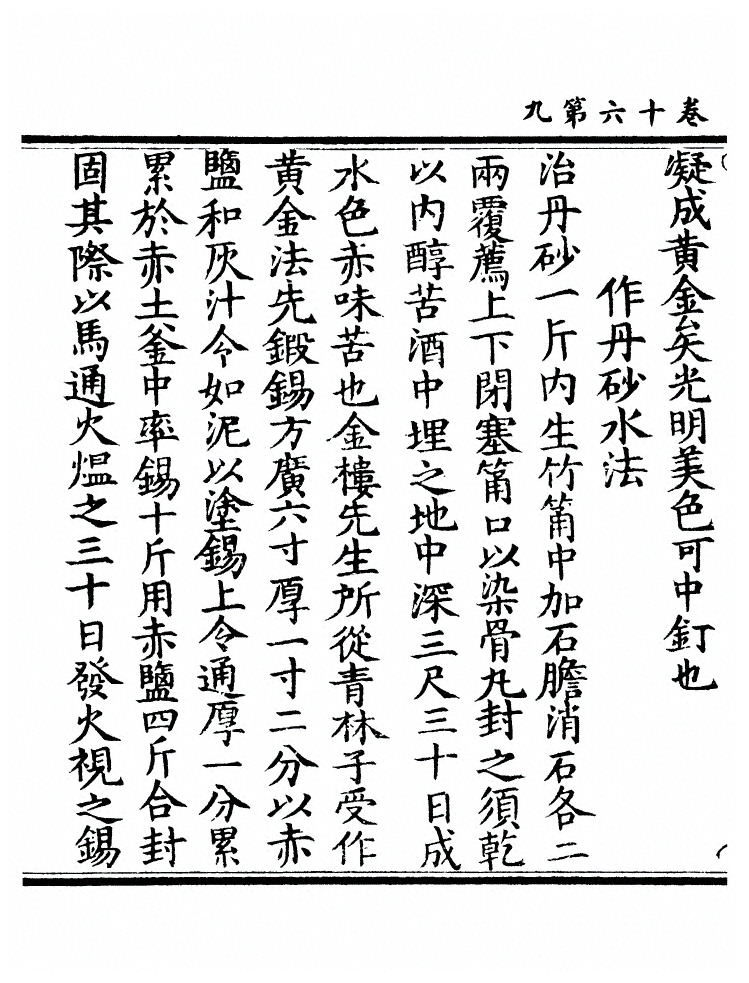 卷十六第九
凝成黄金矣光明美色可中釘也
作丹砂水法
治丹砂一斤内生竹筩中加石膽消石各二
兩覆薦上下閉塞筩口以染骨丸封之須乾
以内醇苦酒中埋之地中深三尺三十日成
水色赤味苦也金樓先生所從青林子受作
黄金法先鍛錫方廣六寸厚一寸二分以赤
鹽和灰汁令如泥以塗錫上令通厚一分累
累於赤土釜中率錫十斤用赤鹽四斤合封
固其際以馬通火熅之三十日發火視之錫